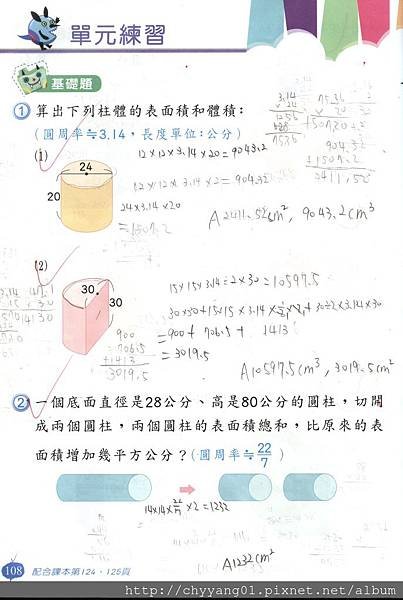 單元練習
基礎題
① 算出下列柱體的表面積和體積：
（圓周率≒3.14，長度單位：公分）
(1)
24
20
12×12×3.14×20=9043.2
12×12×3.14×2=904.32
24×3.14×20
=1507.2
A 2411.52cm², 9043.2cm³
(2)
30
30
15×15×3.14÷2×30=10597.5
=900+706.5+1413
=3019.5
900
706.5
+1413
3019.5
A10597.5cm³, 3019.5cm²
② 一個底面直徑是28公分、高是80公分的圓柱，切開
成兩個圓柱，兩個圓柱的表面積總和，比原來的表
面積增加幾平方公分？（圓周率≒22/7）
14×14×22/7×2=1232
A1232cm²
108
配合課本第124、125頁
http://chyyang01.pixnet.net/album